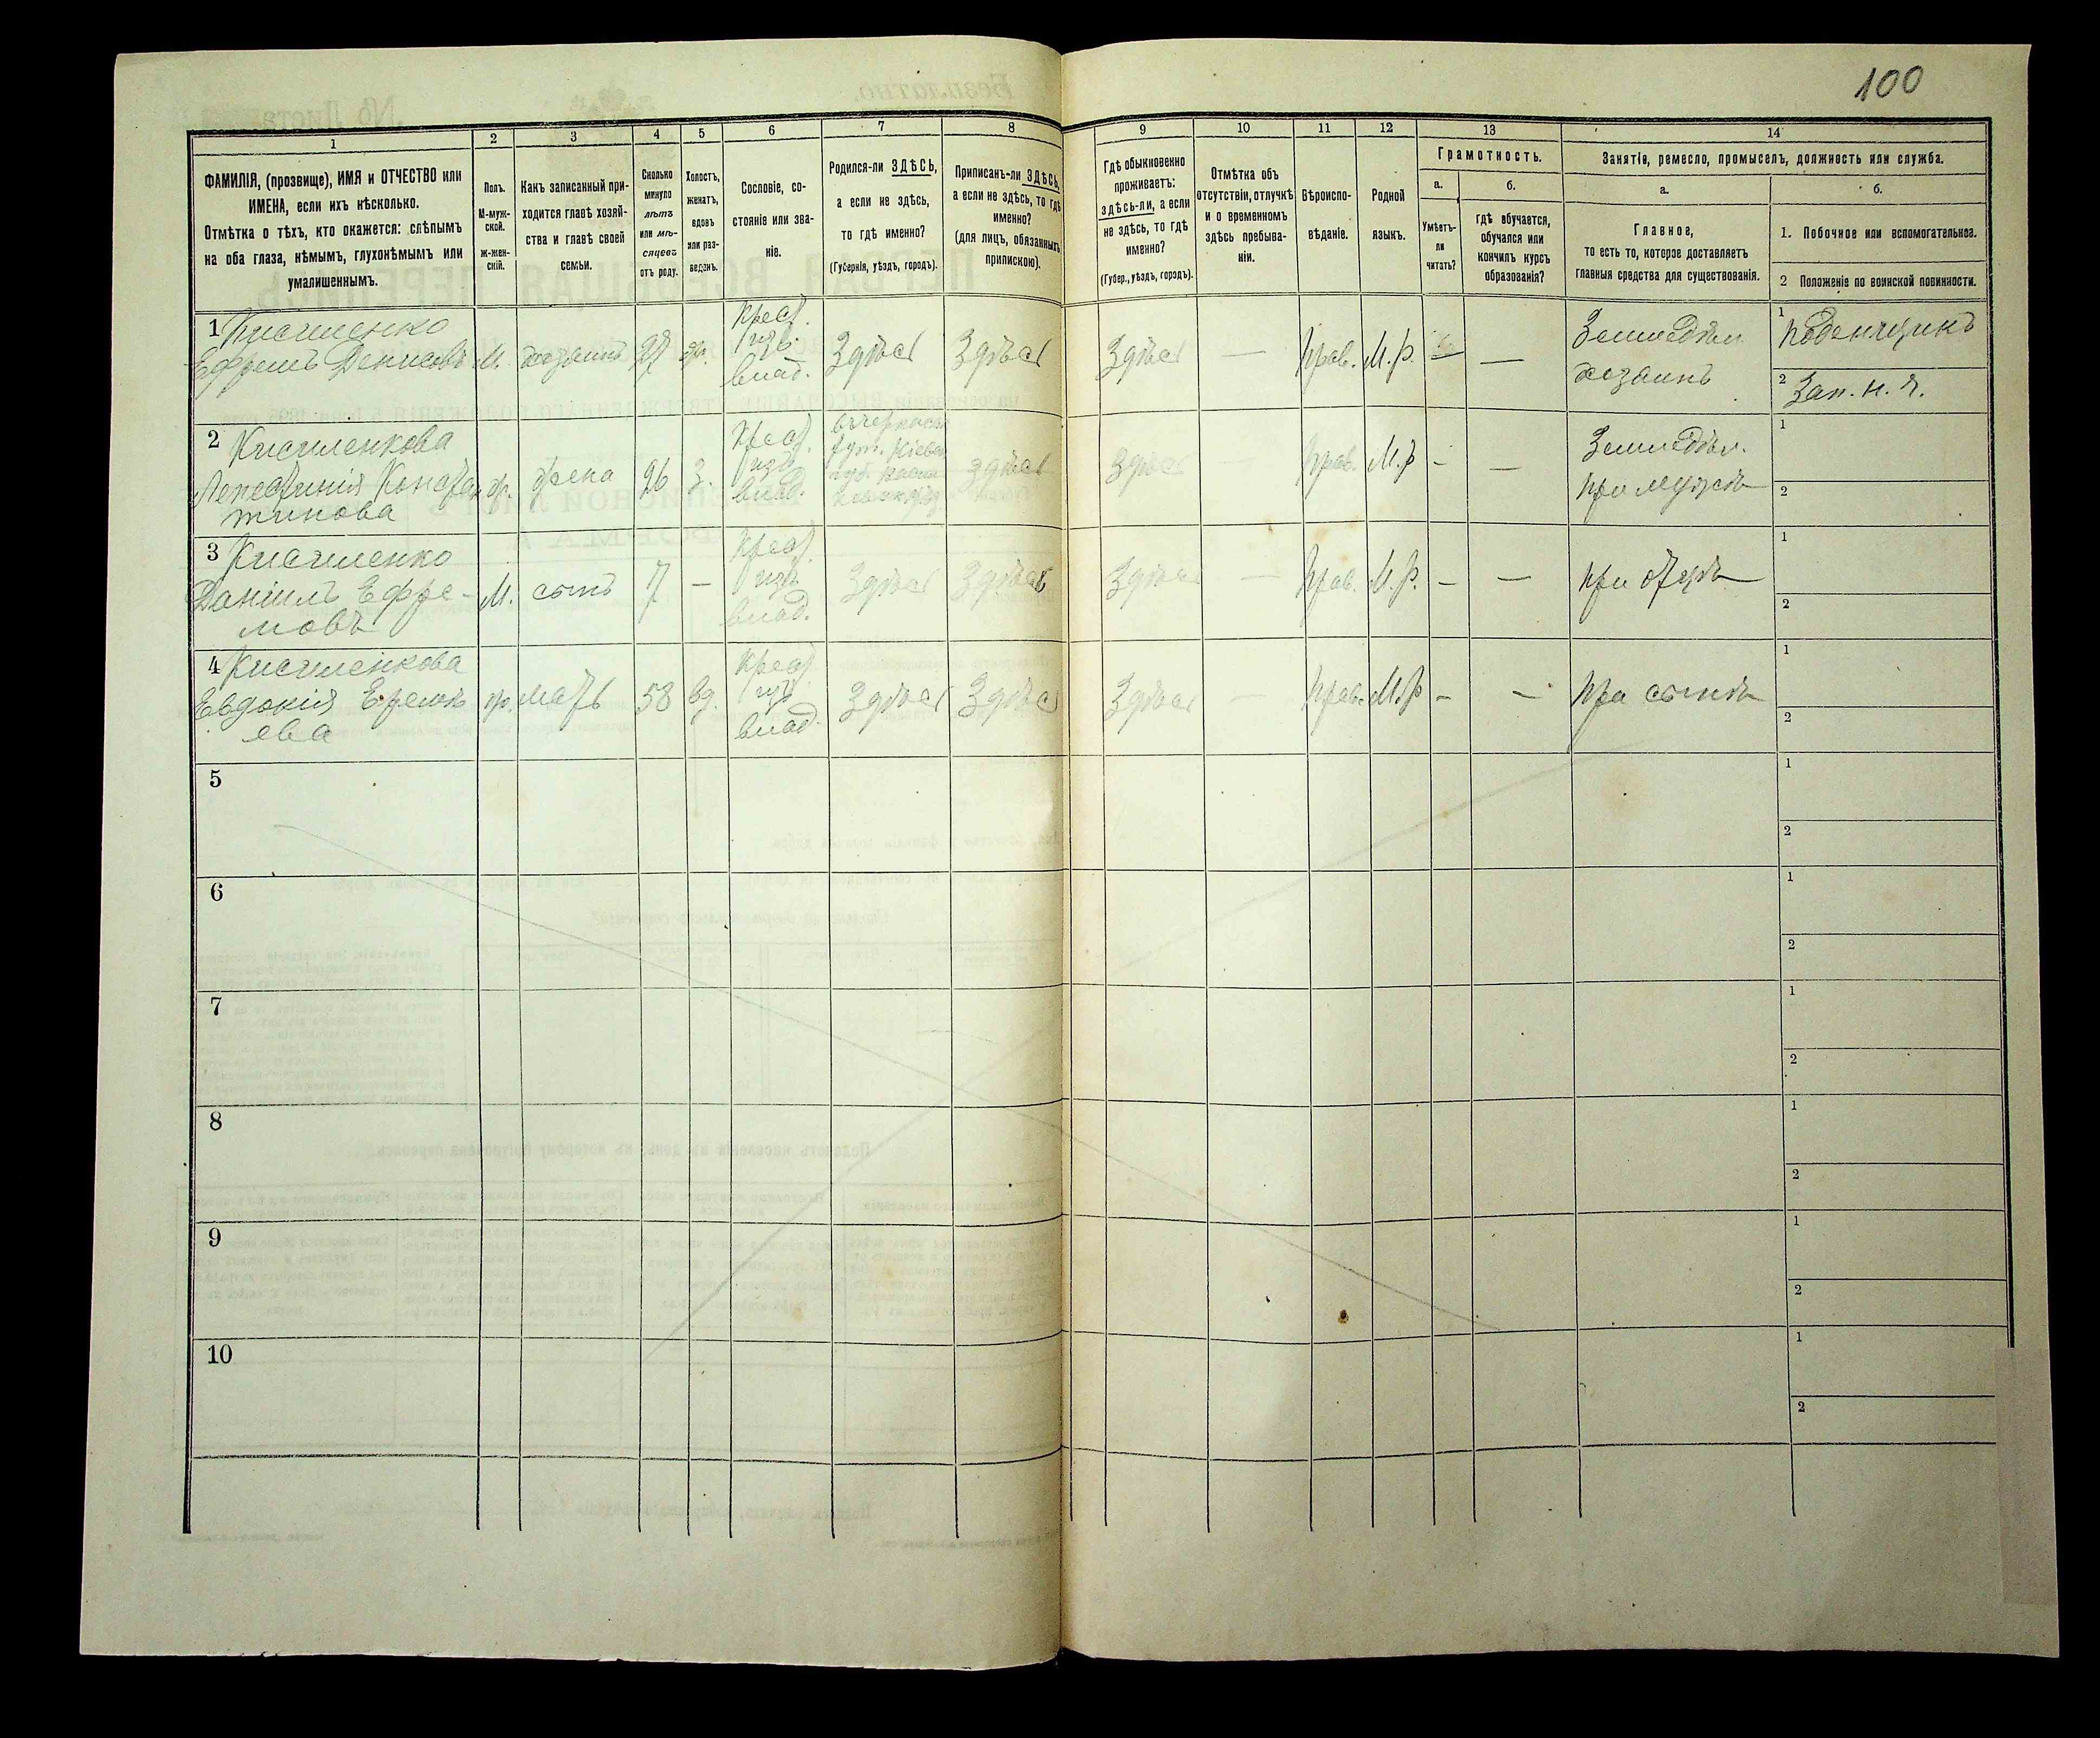 100
1
2
3
4
5
6
7
8
9
10
11
12
13
14
ФАМИЛІЯ, (прозвище), ИМЯ и ОТЧЕСТВО или
ИМЕНА, если ихъ нѣсколько.
Отмѣтка о тѣхъ, кто окажется: слѣпымъ
на оба глаза, нѣмымъ, глухонѣмымъ или
умалишеннымъ.
Полъ.
М-муж-
ской.
Ж-жен-
скій.
Какъ записанный при-
ходится главѣ хозяй-
ства и главѣ своей
семьи.
Сколько
минуло
лѣтъ
или мѣ-
сяцевъ
отъ роду.
Холостъ,
женатъ,
вдовъ
или раз-
веденъ.
Сословіе, со-
стояніе или зва-
ніе.
Родился-ли ЗДѢСЬ,
а если не здѣсь,
то гдѣ именно?
(Губернія, уѣздъ, городъ).
Приписанъ-ли ЗДѢСЬ,
а если не здѣсь, то гдѣ
именно?
(для лицъ, обязанныхъ
припискою).
Гдѣ обыкновенно
проживаетъ:
здѣсь-ли, а если
не здѣсь, то гдѣ
именно?
(Губер., уѣздъ, городъ).
Отмѣтка объ
отсутствіи, отлучкѣ
и о временномъ
здѣсь пребыва-
ніи.
Вѣроиспо-
вѣданіе.
Родной
языкъ.
Грамотность.
а.
Умѣетъ-
ли
читать?
б.
гдѣ обучается,
обучался или
кончилъ курсъ
образованія?
Занятіе, ремесло, промыселъ, должность или служба.
а.
Главное,
то есть то, которое доставляетъ
главныя средства для существованія.
б.
1. Побочное или вспомогательное.
2 Положеніе по воинской повинности.
1 Кисиленко
Ефремъ Денисовъ
М.
хозяинъ
27
ж.
Крест.
изъ
влад.
Здѣсь
Здѣсь
Здѣсь
—
Прав.
М.р.
—
Земледѣл.
хозяинъ
1 Поденщикъ
2 Зап. н. ч.
2 Кисиленкова
Констан
тинова
ж.
жена
26
З.
Крест.
изъ
влад.
губ.
здѣсь
Здѣсь
—
Прав.
М.р
-
—
Земледѣл.
при мужѣ
1
2
3 Кисиленко
Даніилъ Ефре-
мовъ
М.
сынъ
7
—
Крест.
изъ
влад.
Здѣсь
Здѣсь
Здѣсь
—
Прав.
М.р.
-
—
при отцѣ
1
2
4 Кисиленкова
Евдокія
ева
ж.
мать
58
вд.
Крест.
изъ
влад.
Здѣсь
Здѣсь
Здѣсь
—
Прав.
М.р
-
-
при сынѣ
1
2
5
1
2
6
1
2
7
1
2
8
1
2
9
1
2
10
1
2